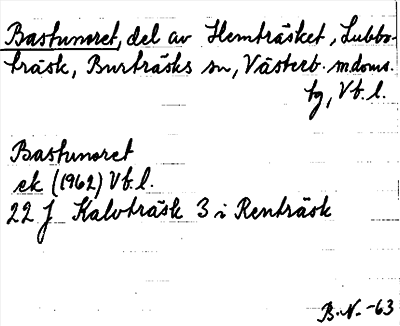 Bastunoret, del av Hemträsket, Lubbo-
träsk, Burträsks sn, Västerb. mdoms.
tg, Vb. l.
Bastunoret
ek (1962) Vb. l.
22 J Kalvträsk 3 i Renträsk
B. N. -63